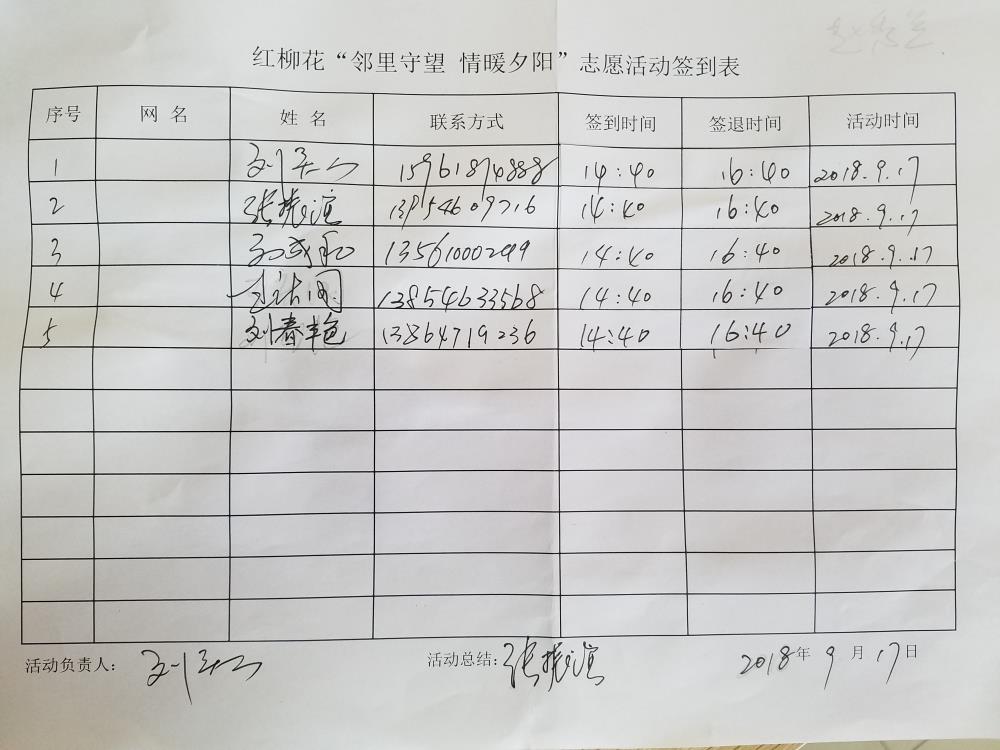 红柳花“邻里守望 情暖夕阳”志愿活动签到表
序号 网 名 姓 名 联系方式 签到时间 签退时间 活动时间
1 15961874888 14:40 16:40 2018.9.17
2 张振谊 13954609716 14:40 16:40 2018.9.17
3 14:40 16:40 2018.9.17
4 13854633568 14:40 16:40 2018.9.17
5 刘春艳 13864719236 14:40 16:40 2018.9.17
活动负责人： 活动总结：张振谊 2018年9月17日